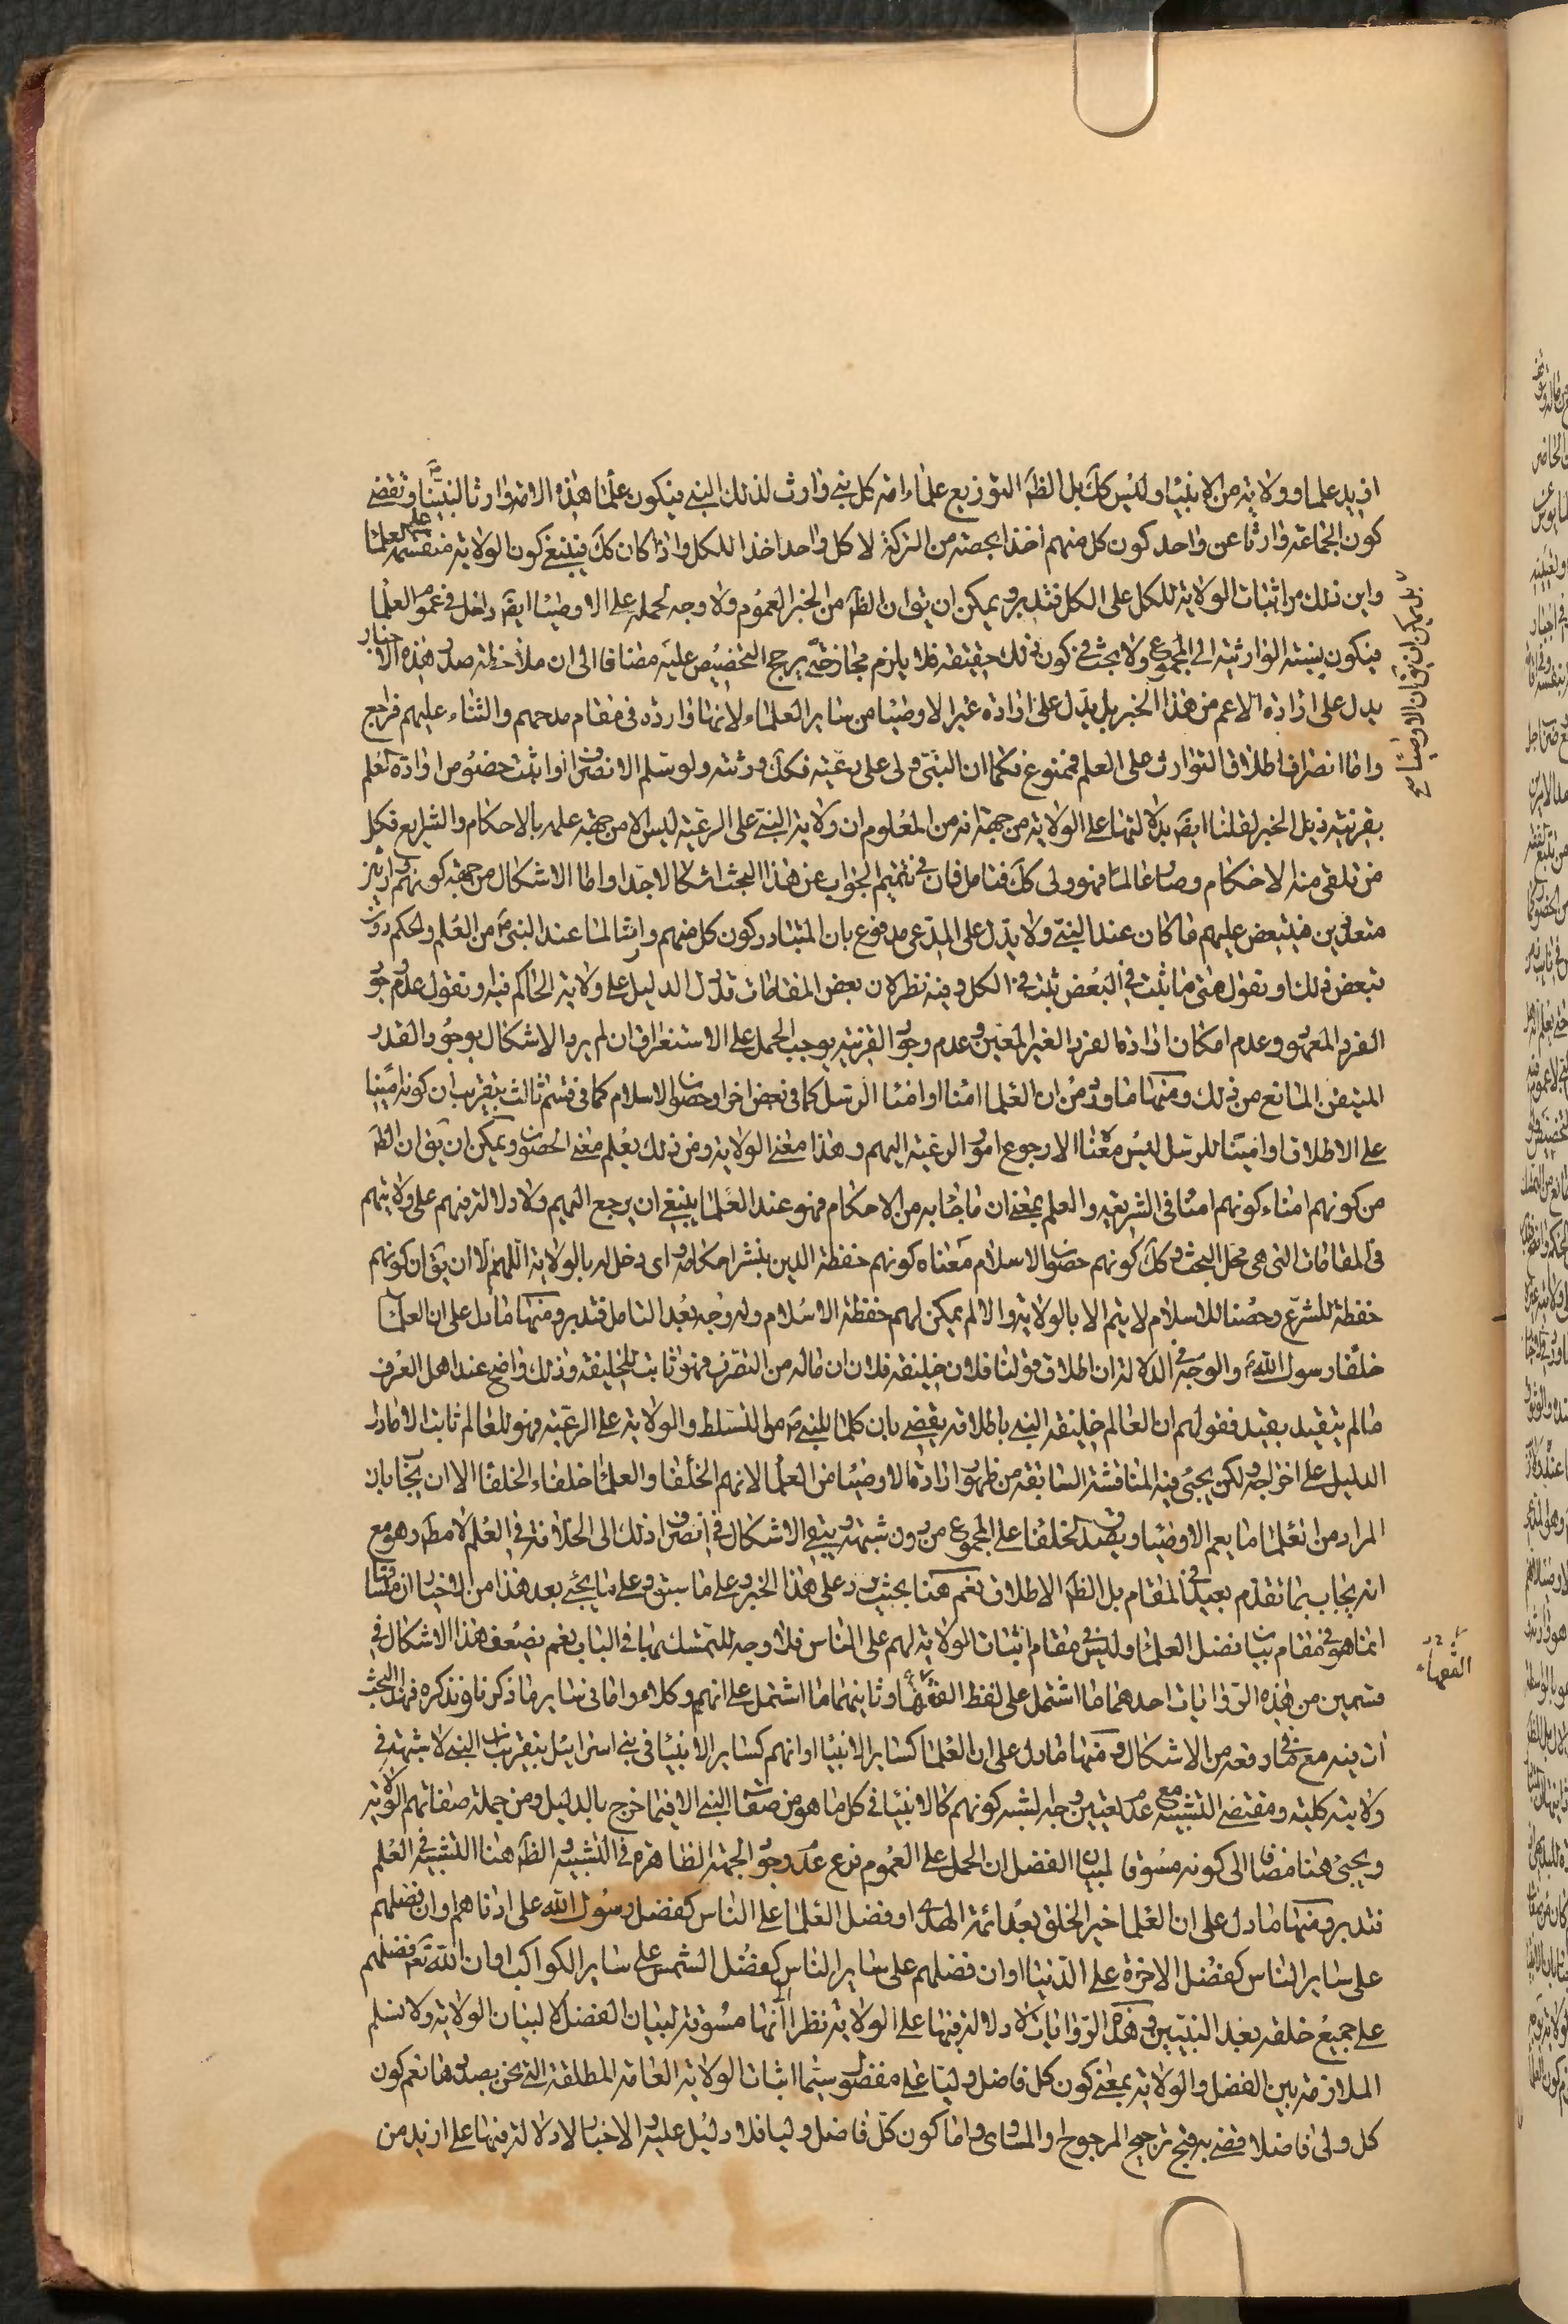 ازيد علما وولاية من الانبياء وليس كك بل الظ التوزيع علماء امة كل نبي وارث لذلك النبي فيكون علماء هذه الامة وارثا لنبينا ص وتقضي
كون الجماعة وارثا عن واحد كون كل منهم اخذا بحصته من التركة لا كل واحد اخذا للكل واذا كان كك فينبغي كون الولاية منقسمة على العلماء
واين ذلك من اثبات الولاية للكل على الكل فتدبر ويمكن ان يقو ان الظ من الخبر العموم ولا وجه لحمله على الاوصياء ايضا داخل في عموم العلماء
فيكون نسبة الوارثية الى المجموع ولا بحث في كون ذلك حقيقة فلا يلزم مجاز حتى يرجح التخصيص عليه مضافا الى ان ملاحظة صدر هذه الاخبار
يدل على ارادة الاعم من هذا الخبر بل يدل على ارادة غير الاوصياء من ساير العلماء لانها واردة في مقام مدحهم والثناء عليهم فراجع
واما انصراف اطلاق التوارث على العلم فممنوع فكما ان النبي ولى على رعيته فكك ورثته ولو سلم الانصراف او اثبت خصوص ارادة العلم
بقرينة ذيل الخبر لقلنا ايضا بدلالتها على الولاية من جهة انه من المعلوم ان ولاية النبي على الرعية ليس الا من جهة علمه بالاحكام والشرايع فكل
من تلقى منه الاحكام وصار عالما فهو ولى كك فتامل فان في تتميم الجواب عن هذا البحث اشكالا جدا واما الاشكال من جهة كونهم وارثين
متعددين فيتبعض عليهم ما كان عند النبي ولا يدل على المدعى مدفوع بان المتبادر كون كل منهم وارثا لما عند النبي ص من العلم والحكم دون
تبعض ذلك او نقول متى ما ثبت في البعض ثبت في الكل وفيه نظر لان بعض المقامات قد دل الدليل على ولاية الحاكم فيه او نقول عدم وجود
الفرد المعهود وعدم امكان ارادة الفرد الغير المعين وعدم وجود القرينة يوجب الحمل على الاستغراق ان لم يرد الاشكال بوجود القدر
المتيقن المانع من ذلك ومنها ما ورد من ان العلماء امنا او امناء الرسل كما في بعض اخر او حصون الاسلام كما في قسم ثالث بتقريب ان كونه امينا
على الاطلاق او امينا للرسل ليس معناه الا رجوع امور الرعية اليهم وهذا معنى الولاية ومن ذلك يعلم معنى الحصون ويمكن ان يقو ان الظ
من كونهم امناء كونهم امناء في الشريعة والعلم بمعنى ان ما جاء به من الاحكام فهو عند العلماء ينبغي ان يرجع اليهم ولا دلالة فيهم على ولايتهم
في المقامات التي هي محل البحث وكك كونهم حصون الاسلام معناه كونهم حفظة الدين بنشر احكامه واى دخل له بالولاية اللهم الا ان يقو ان كونهم
حفظة للشرع وحصنا للاسلام لا يتم الا بالولاية والا لم يمكن لهم حفظة الاسلام وله وجه بعد التامل فتدبر ومنها ما دل على ان العلماء
خلفاء رسول الله ص والوجه في الدلالة ان اطلاق قولنا فلان خليفة فلان ان ماله من التصرف فهو ثابت للخليفة وذلك واضح عند اهل العرف
ما لم يتقيد بقيد فقولهم ان العالم خليفة النبي باطلاقه يقضي بان كلما للنبي ص من التسلط والولاية على الرعية فهو للعالم ثابت الا ما دل
الدليل على اخراجه ولكن يجيئ فيه المناقشة السابقة من ظهور ارادة الاوصياء من العلماء لانهم الخلفاء والعلماء خلفاء الخلفاء الا ان يجاب بان
المراد من العلماء ما يعم الاوصياء ويصدق الخلفاء على المجموع من دون شبهة ويبقى الاشكال في انصراف ذلك الى الخلافة في العلم لا مط وهو مع
انه يجاب بما تقدم بعيد في المقام بل الظ الاطلاق نعم هنا بحث يرد على هذا الخبر وعلى ما سبق وعلى ما يجئ بعد هذا من الاخبار ان مساقها
انما هو في مقام بيان فضل العلماء وليس في مقام اثبات الولاية لهم على الناس فلا وجه للتمسك بها في الباب نعم يضعف هذا الاشكال في
قسمين من هذه الروايات احدهما ما اشتمل على لفظ الفقهاء وثانيهما ما اشتمل على انهم وكلاء واما في ساير ما ذكرنا ونذكره فهذا البحث
ات فيه مع ما في دفعه من الاشكال ومنها ما دل على ان العلماء كساير الانبياء او انهم كساير الانبياء في بني اسرائيل بتقريب ان النبي لا شبهة في
ولايته كلية ومقتضى التشبيه مع عدم تعيين وجه لشبه كونهم كالانبياء في كل ما هو من صفات النبي الا فيما خرج بالدليل ومن جملة صفاتهم الولاية
ويجيئ هنا مضافا الى كونه مسوقا لبيان الفضل ان الحمل على العموم فرع عدم وجود الجهة الظاهرة في التشبيه والظ هنا التشبيه في العلم
فتدبر ومنها ما دل على ان العلماء خير الخلق بعد ائمة الهدى او فضل العلماء على الناس كفضل رسول الله على ادناهم او ان فضلهم
على ساير الناس كفضل الاخرة على الدنيا او ان فضلهم على ساير الناس كفضل الشمس على ساير الكواكب او ان الله تع فضلهم
على جميع خلقه بعد النبيين وهذه الروايات لا دلالة فيها على الولاية نظرا الى انها مسوقة لبيان الفضل لا لبيان الولاية ولا نسلم
الملازمة بين الفضل والولاية بمعنى كون كل فاضل وليا على مفضول سيما اثبات الولاية العامة المطلقة التي نحن بصددها نعم كون
كل ولى فاضلا قضى به قبح ترجيح المرجوح او المساوى واما كون كل فاضل وليا فلا دليل عليه والاخبار لا دلالة فيها على ازيد من
بل يمكن ان يقو ان الاوصياء
الفقهاء